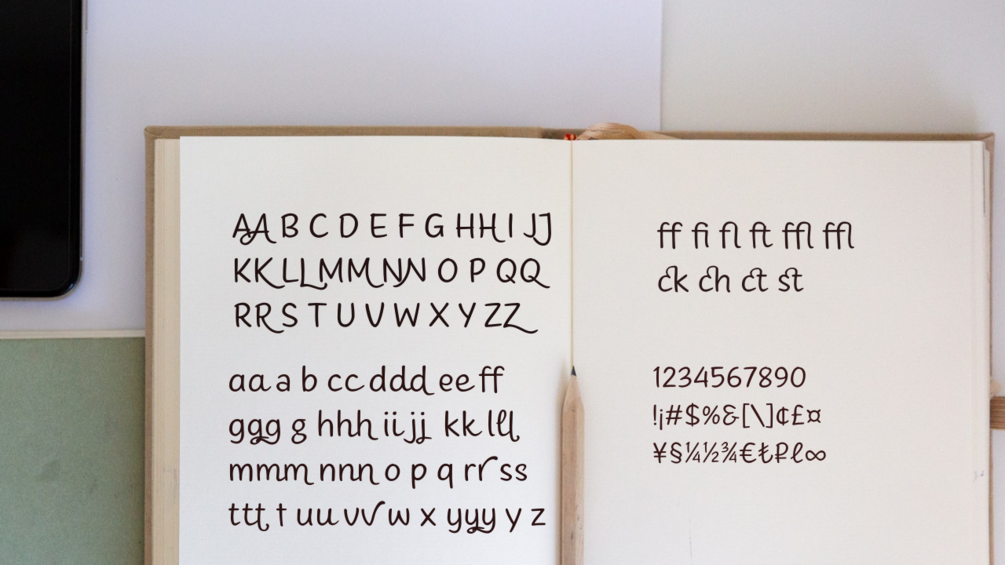 AABCDEFGHHIJJ
KKLLMMNNOPQQ
RRSTUVWXYZZ
aaabccdddeeff
gggghhhiijjkklll
mmmnnnopqrrss
ttttuuvvwxyyyyz
ff fi fl ft ffl ffl
ck ch ct st
1234567890
!¡#$%&[\]¢£¤
¥§¼½¾€₺₽ℓ∞